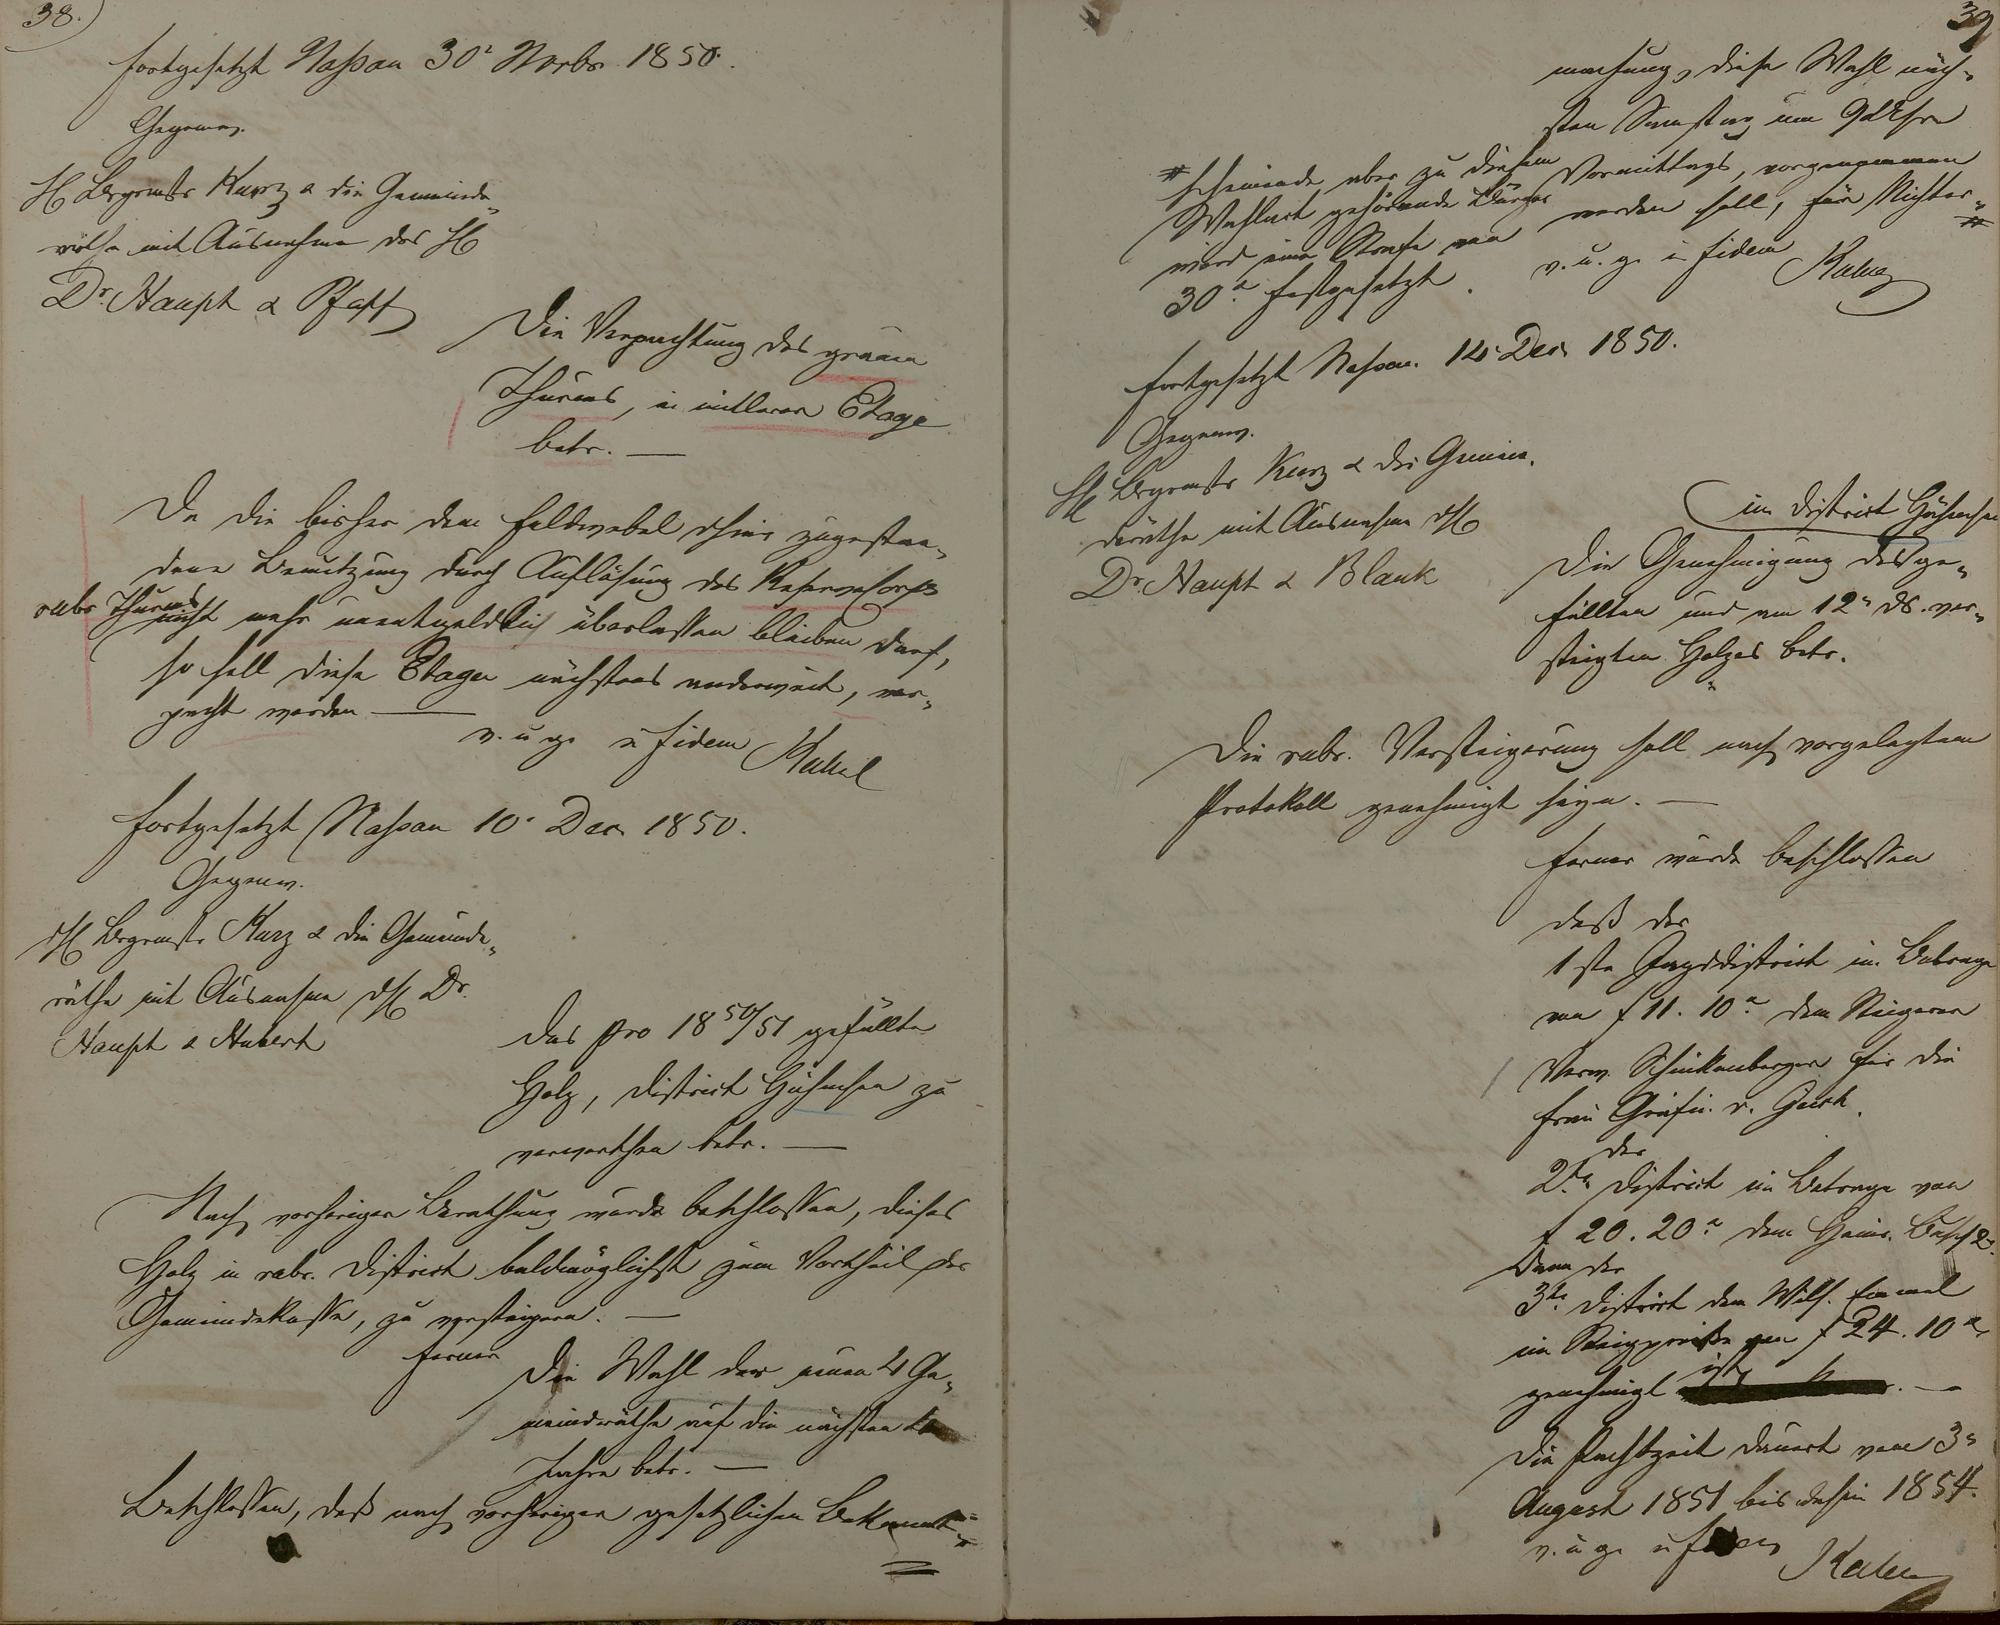 38.
fortgesetzt Naßau 30t Novbr 1850.
Gegenw.
H Brgrmstr Kurz & die Gemeinde„
räthe mit Ausnahme des H
Dr. Haupt & Pfaff
Die Verpachtung des grauen
Thurms, in mittlerer Etage
betr. —
Da die bisher dem Feldwebel zugestan„
dene Benutzung durch Auflösung des Reservecorps
rubr Thurms
nicht mehr unentgeldlich überlassen bleiben darf,
so soll diese Etage nächstens anderweit, ver„
pacht werden —
v. u. g. in fidem
fortgesetzt Naßau 10t Dec 1850.
Gegenw.
H Brgrmstr Kurz & die Gemeinde„
räthe mit Ausnahme H Dr.
Haupt & Hubert
Das pro 1850/51 gefällte
Holz, District zu
verwerthen betr. —
Nach vorheriger Berathung wurde beschlossen, dieses
Holz in rubr. District baldmöglichst zum Vortheil der
Gemeindekasse, zu versteigern. —
ferner
Die Wahl der neuen 4 Ge„
meinderäthe auf die nächsten 4
Jahre betr. —
Beschlossen, daß nach vorheriger gesetzlichen Bekannt„
39
machung, diese Wahl näch„
sten Samstag um 9 Uhr
Vormittags, vorgenommen
werden soll, für Nichter„ #
# scheinende, aber zu diesem
Wahlact gehörende Bürger
wird eine Strafe von
30 x festgesetzt.
v. u. g. in fidem
fortgesetzt Naßau. 14t Dec 1850.
Gegenw.
H Brgrmstr Kurz & die Gemein„
deräthe mit Ausnahme H
Dr. Haupt & Blank
im District
Die Genehmigung des ge„
fällten und am 12n ds. ver„
steigten Holzes betr.
Die rubr. Versteigerung soll nach vorgelegtem
Protokoll genehmigt seyn. —
ferner wurde beschlossen
daß der
1ste Jagddistrict im Betrage
von f 11. 10 x dem Steigerer
Verw. Schinkenberger für die
Frau Gräfin v.
der
2te District im Betrage von
f 20. 20 x dem Heinr.
Dann der
3te District dem Wilh.
im Steigpreiße von f 24. 10 x
genehmigt ist. —
Die Pachtzeit dauert vom 3n
August 1851 bis dahin 1854.
v. u. g. in fidem